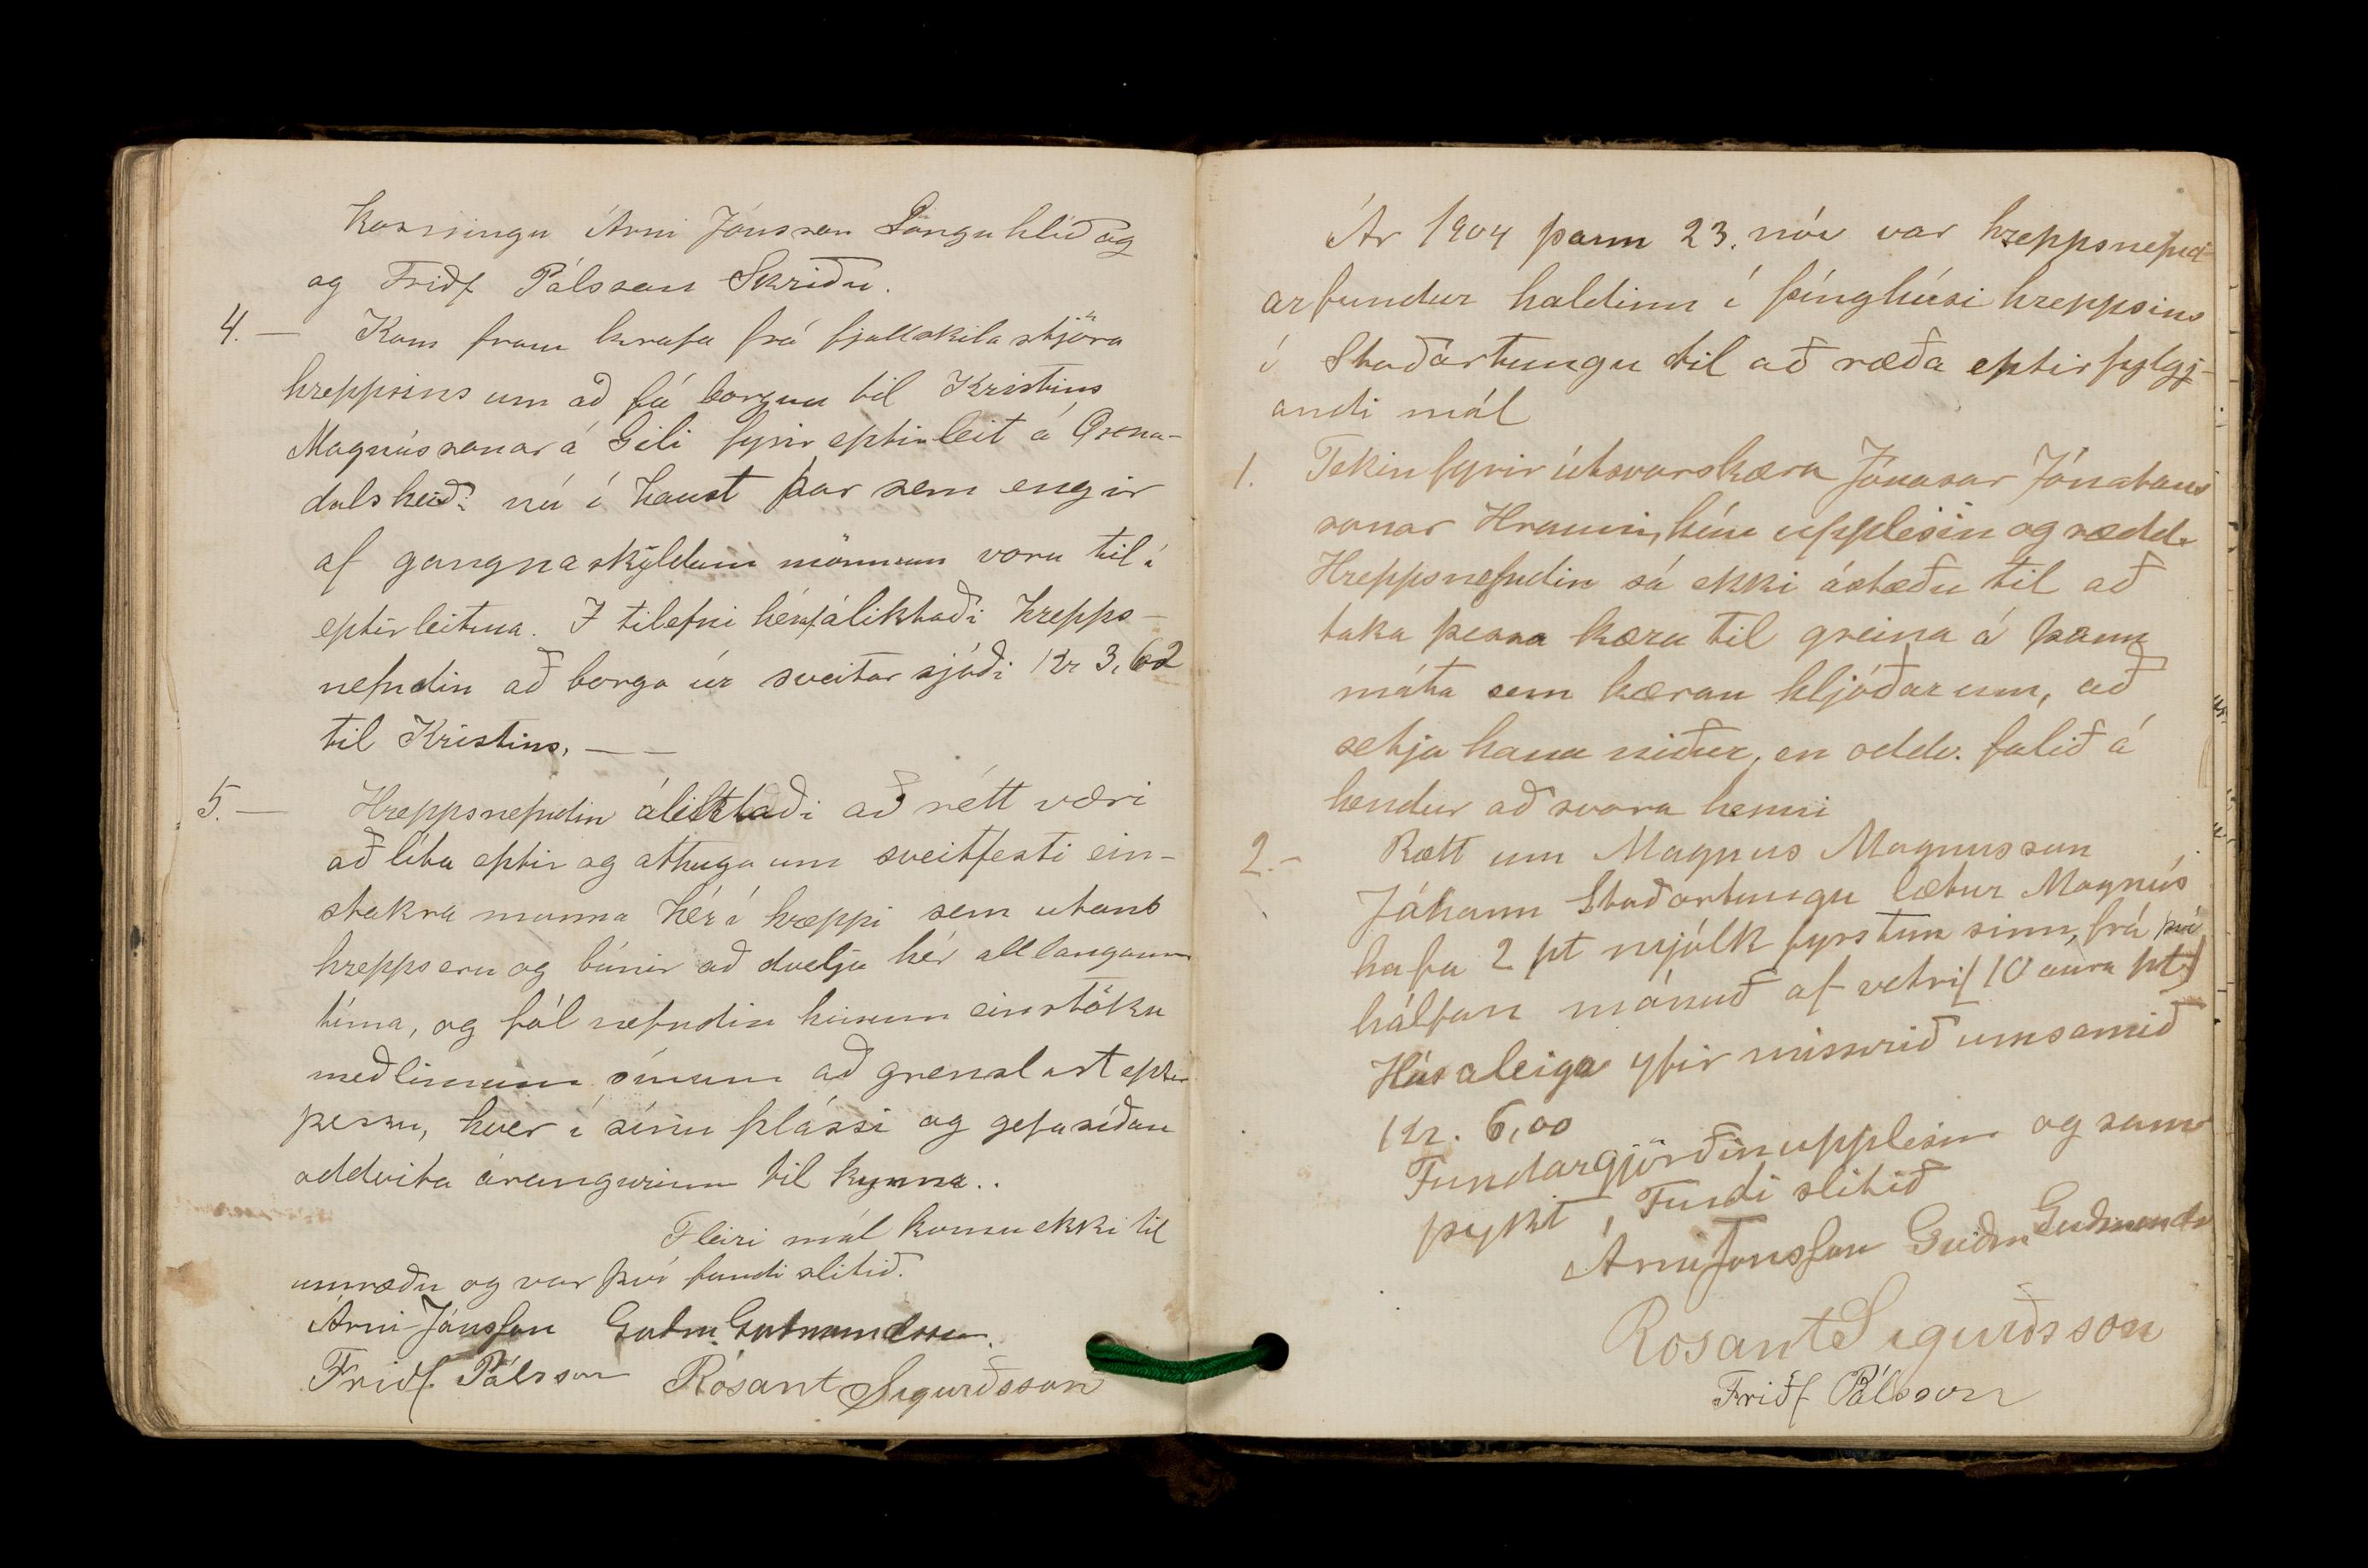 kosningu Árni Jónsson Lönguhlíð og
og Friðf Pálsson Skriðu.
4. — Kom fram krafa frá fjallskilastjóra
hreppsins um að fá borgun til Kristins
Magnússonar á Gili fyrir eptirleit á Öxna-
dalsheiði nú í haust þar sem engir
af gangnaskyldum mönnum voru til í
eptirleitina. I tilefni héraf áliktaði hrepps-
nefndin að borga úr sveitarsjóði Kr 3,62
til Kristins. — —
5. — Hreppsnefndin áliktaði að rétt væri
að líta eptir og athuga um sveitfesti ein-
stakra manna hér í hreppi sem utans
hrepps eru og búnir að dvelja hér all langann
tíma, og fól nefndin hinum einstöku
meðlimum sínum að grenslast eptir
þessu, hver í sínu plássi og gefa síðan
oddvita árangurinn til kynna..
Fleiri mál komu ekki til
umræðu og var því fundi slitið.
Árni Jónsson Guðm. Guðmundsson.
Friðf. Pálsson Rósant Sigurðsson
Ár 1904 þann 23. nóv var hreppsnefnd-
arfundur haldinn í þinghúsi hreppsins
í Staðartungu til að ræða eptirfylgj-
andi mál
1. Tekin fyrir útsvarskæra Jónasar Jónatans
sonar Hrauni, hún upplesin og rædd.
Hreppsnefndin sá ekki ástæðu til að
taka þessa kæru til greina á þann
máta sem kæran hljóðar um, að
setja hana niður, en oddv. falið á
hendur að svara henni
2. — Rætt um Magnus Magnusson
Jóhann Staðartungu lætur Magnús
hafa 2 pt mjólk fyrst um sinn, frá því
hálfan mánuð af vetri (10 aura pt)
Húsaleiga yfir missirið umsamið
Kr. 6,00
Fundargjörðin upplesin og sam
þykt, Fundi slitið
Árni Jónsson Guðm Guðmunds
Rosant Sigurðsson
Friðf Pálsson